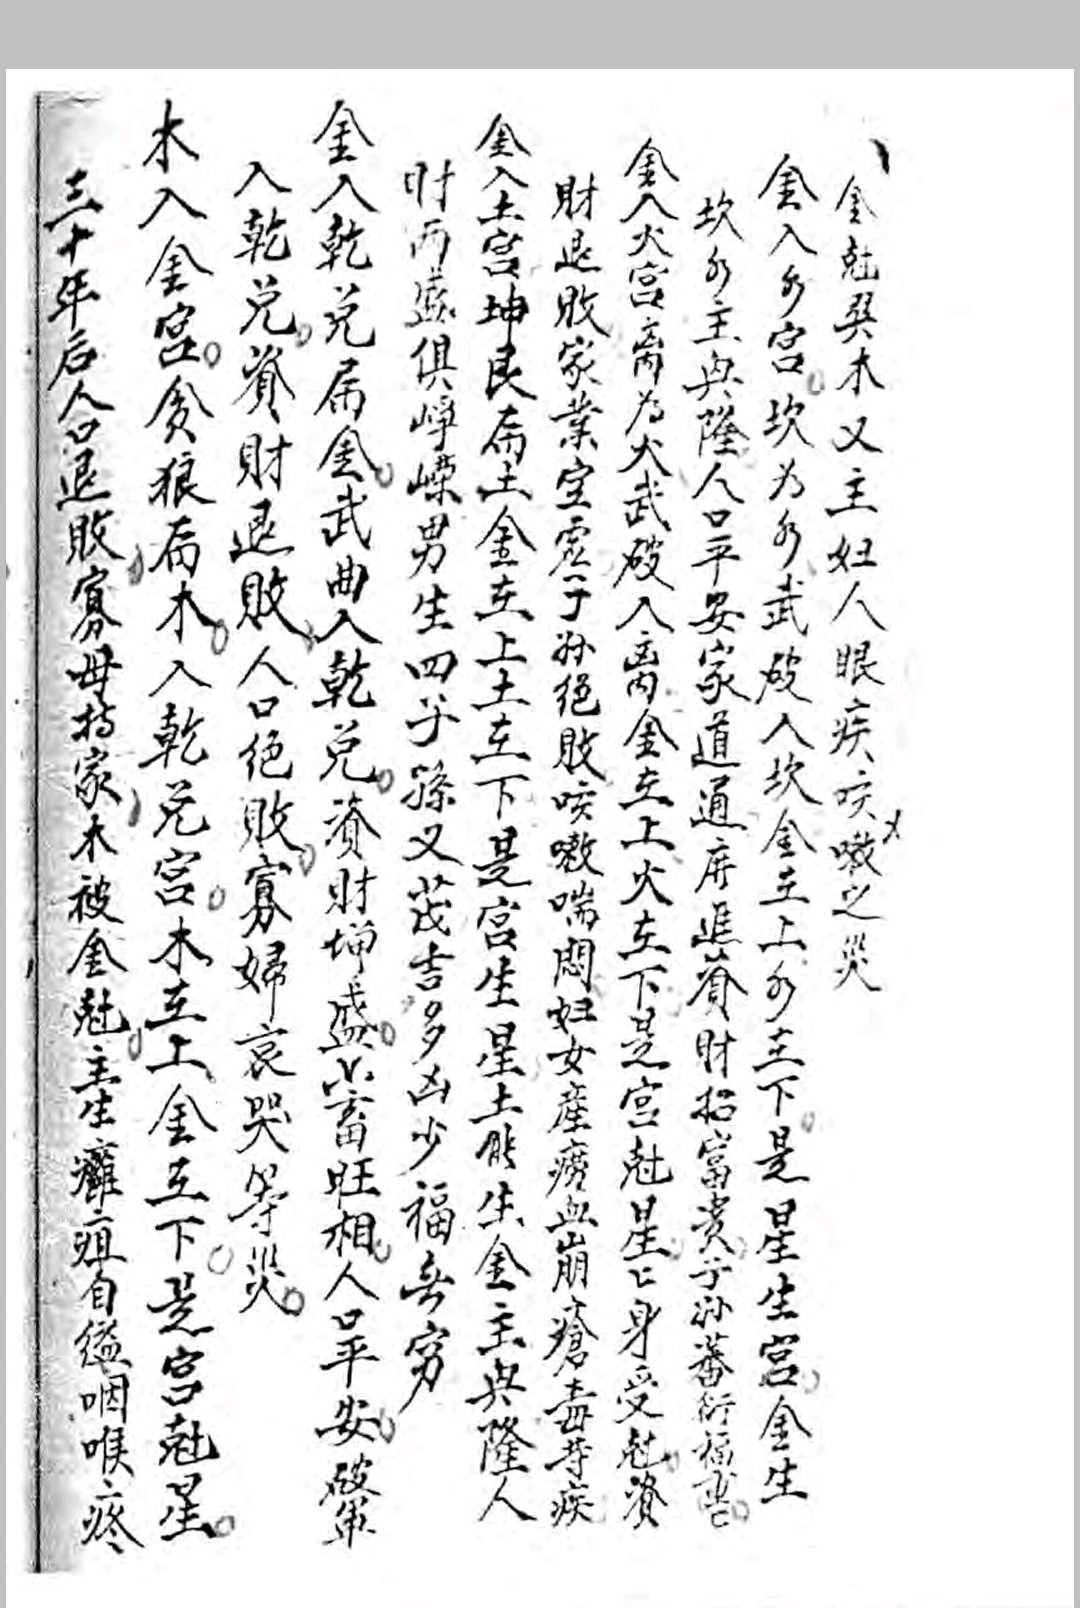 金尅巽木又主妇人眼疾咳嗽之災
金入水宫坎为水武破入坎金在上水在下是星生宫金生
坎水主興隆人口平安家道通庠進資財招富贵子孙蕃衍福
金入火宫离为火武破入离金在上火在下是宫尅星亡身受尅資
財退敗家業空虚子孙绝敗咳嗽喘悶妇女產痨血崩瘡毒等疾
金入土宫坤艮屬土金在上土在下是宫生星土能生金主興隆人
財两盛俱崢嶸男生四子孫又茂吉多凶少福無穷
金入乾兑屬金武曲入乾兑資財增盛六畜旺相人口平安破軍
入乾兑資財退敗人口绝敗寡婦哀哭等災
木入金宫贪狼屬木入乾兑宫木在上金在下是宫尅星
三十年后人口退敗寡母持家木被金尅主生癱疽自缢咽喉疼